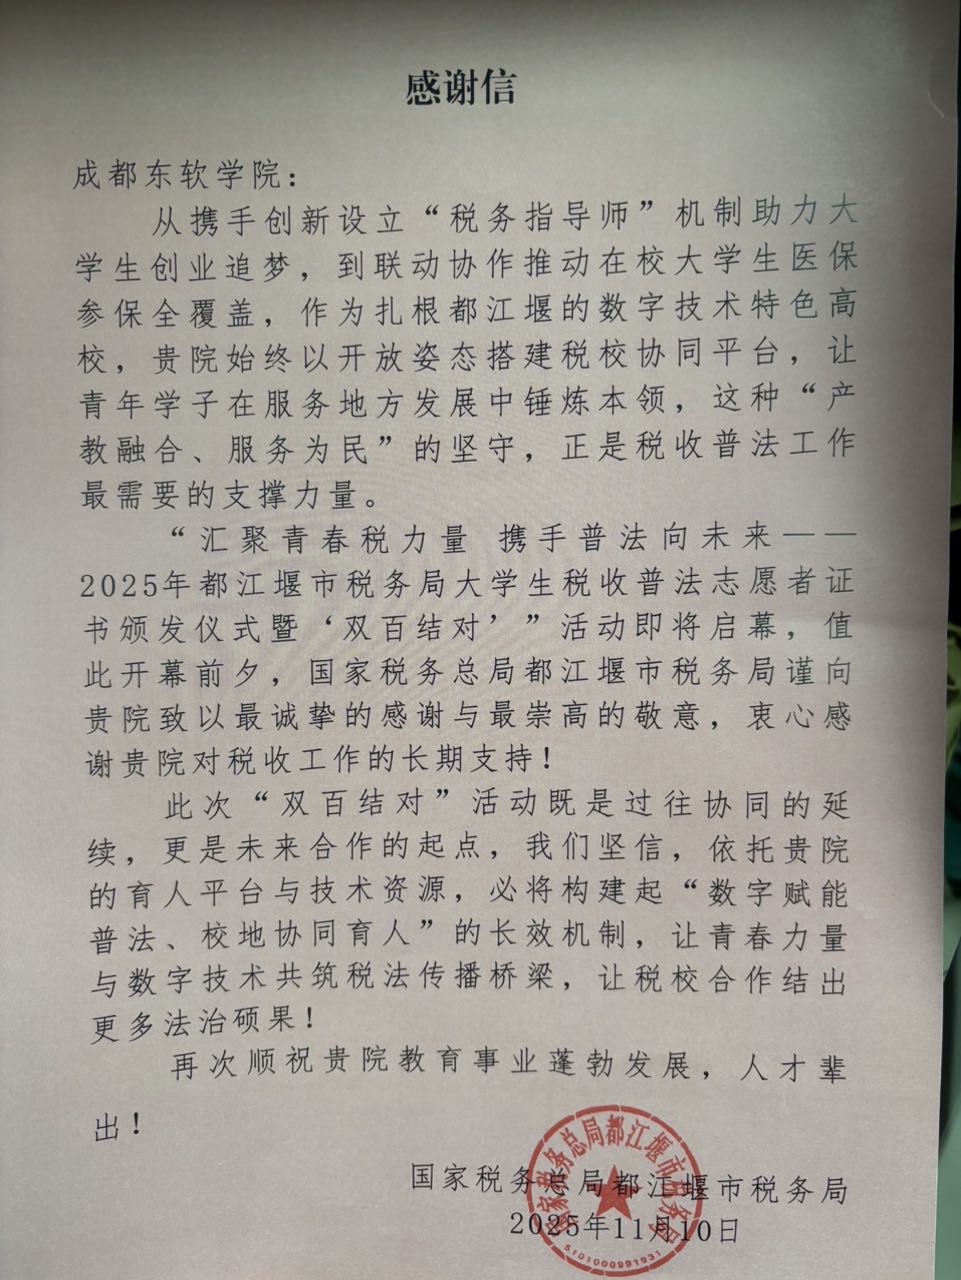 感谢信
成都东软学院：
从携手创新设立“税务指导师”机制助力大
学生创业追梦，到联动协作推动在校大学生医保
参保全覆盖，作为扎根都江堰的数字技术特色高
校，贵院始终以开放姿态搭建税校协同平台，让
青年学子在服务地方发展中锤炼本领，这种“产
教融合、服务为民”的坚守，正是税收普法工作
最需要的支撑力量。
“汇聚青春税力量 携手普法向未来——
2025年都江堰市税务局大学生税收普法志愿者证
书颁发仪式暨‘双百结对’”活动即将启幕，值
此开幕前夕，国家税务总局都江堰市税务局谨向
贵院致以最诚挚的感谢与最崇高的敬意，衷心感
谢贵院对税收工作的长期支持！
此次“双百结对”活动既是过往协同的延
续，更是未来合作的起点，我们坚信，依托贵院
的育人平台与技术资源，必将构建起“数字赋能
普法、校地协同育人”的长效机制，让青春力量
与数字技术共筑税法传播桥梁，让税校合作结出
更多法治硕果！
再次顺祝贵院教育事业蓬勃发展，人才辈
出！
国家税务总局都江堰市税务局
2025年11月10日
国家税务总局都江堰市税务局
5101000991931